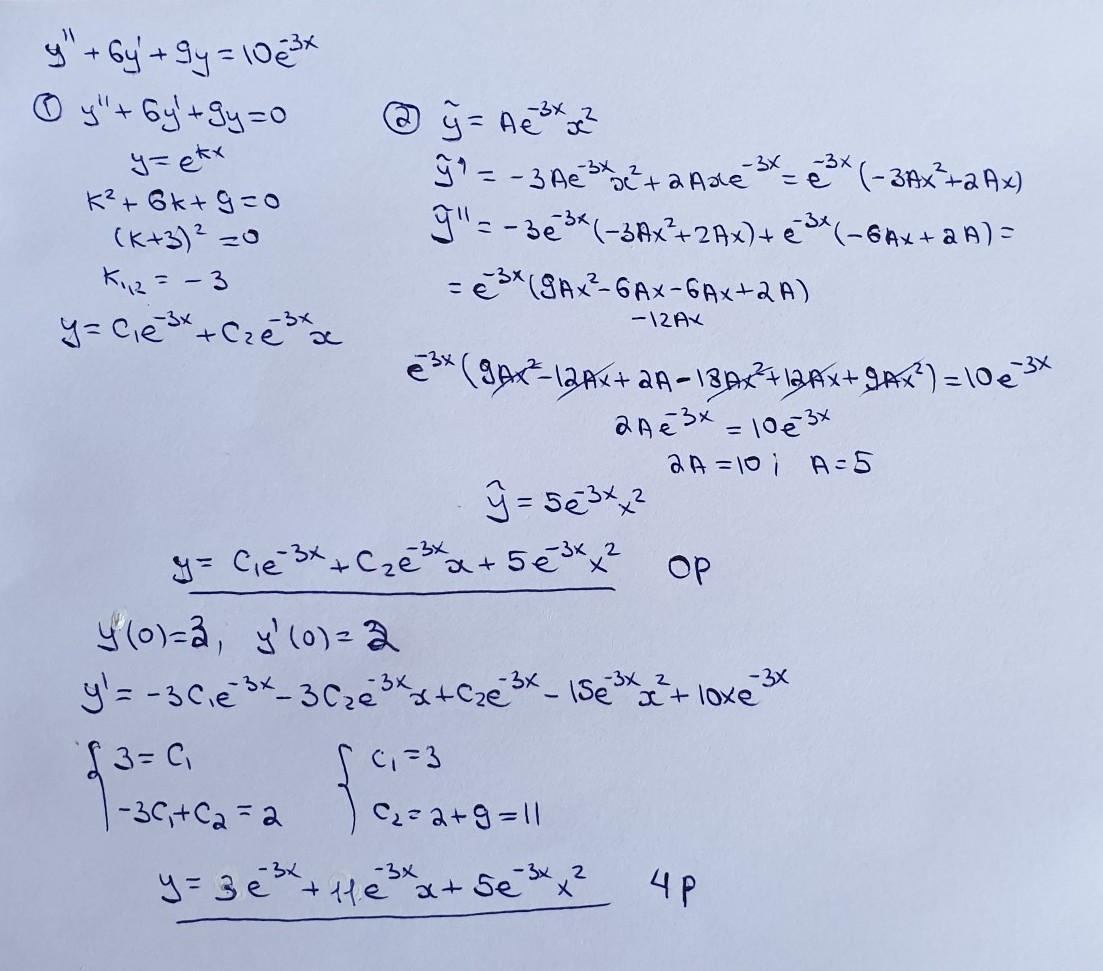 y'' + 6y' + 9y = 10e^{-3x}
① y'' + 6y' + 9y = 0
y = e^{kx}
k² + 6k + 9 = 0
(k+3)² = 0
k_{1,2} = -3
y = C₁e^{-3x} + C₂e^{-3x}x
② ỹ = Ae^{-3x}x²
ỹ' = -3Ae^{-3x}x² + 2Axe^{-3x} = e^{-3x}(-3Ax² + 2Ax)
ỹ'' = -3e^{-3x}(-3Ax² + 2Ax) + e^{-3x}(-6Ax + 2A) =
= e^{-3x}(9Ax² - 6Ax - 6Ax + 2A)
-12Ax
e^{-3x}(9Ax² - 12Ax + 2A - 18Ax² + 12Ax + 9Ax²) = 10e^{-3x}
2Ae^{-3x} = 10e^{-3x}
2A = 10; A = 5
ỹ = 5e^{-3x}x²
y = C₁e^{-3x} + C₂e^{-3x}x + 5e^{-3x}x² OP
y(0)=3, y'(0)=2
y' = -3C₁e^{-3x} - 3C₂e^{-3x}x + C₂e^{-3x} - 15e^{-3x}x² + 10xe^{-3x}
{ 3 = C₁ { C₁ = 3
-3C₁ + C₂ = 2 C₂ = 2 + 9 = 11
y = 3e^{-3x} + 11e^{-3x}x + 5e^{-3x}x² ЧР